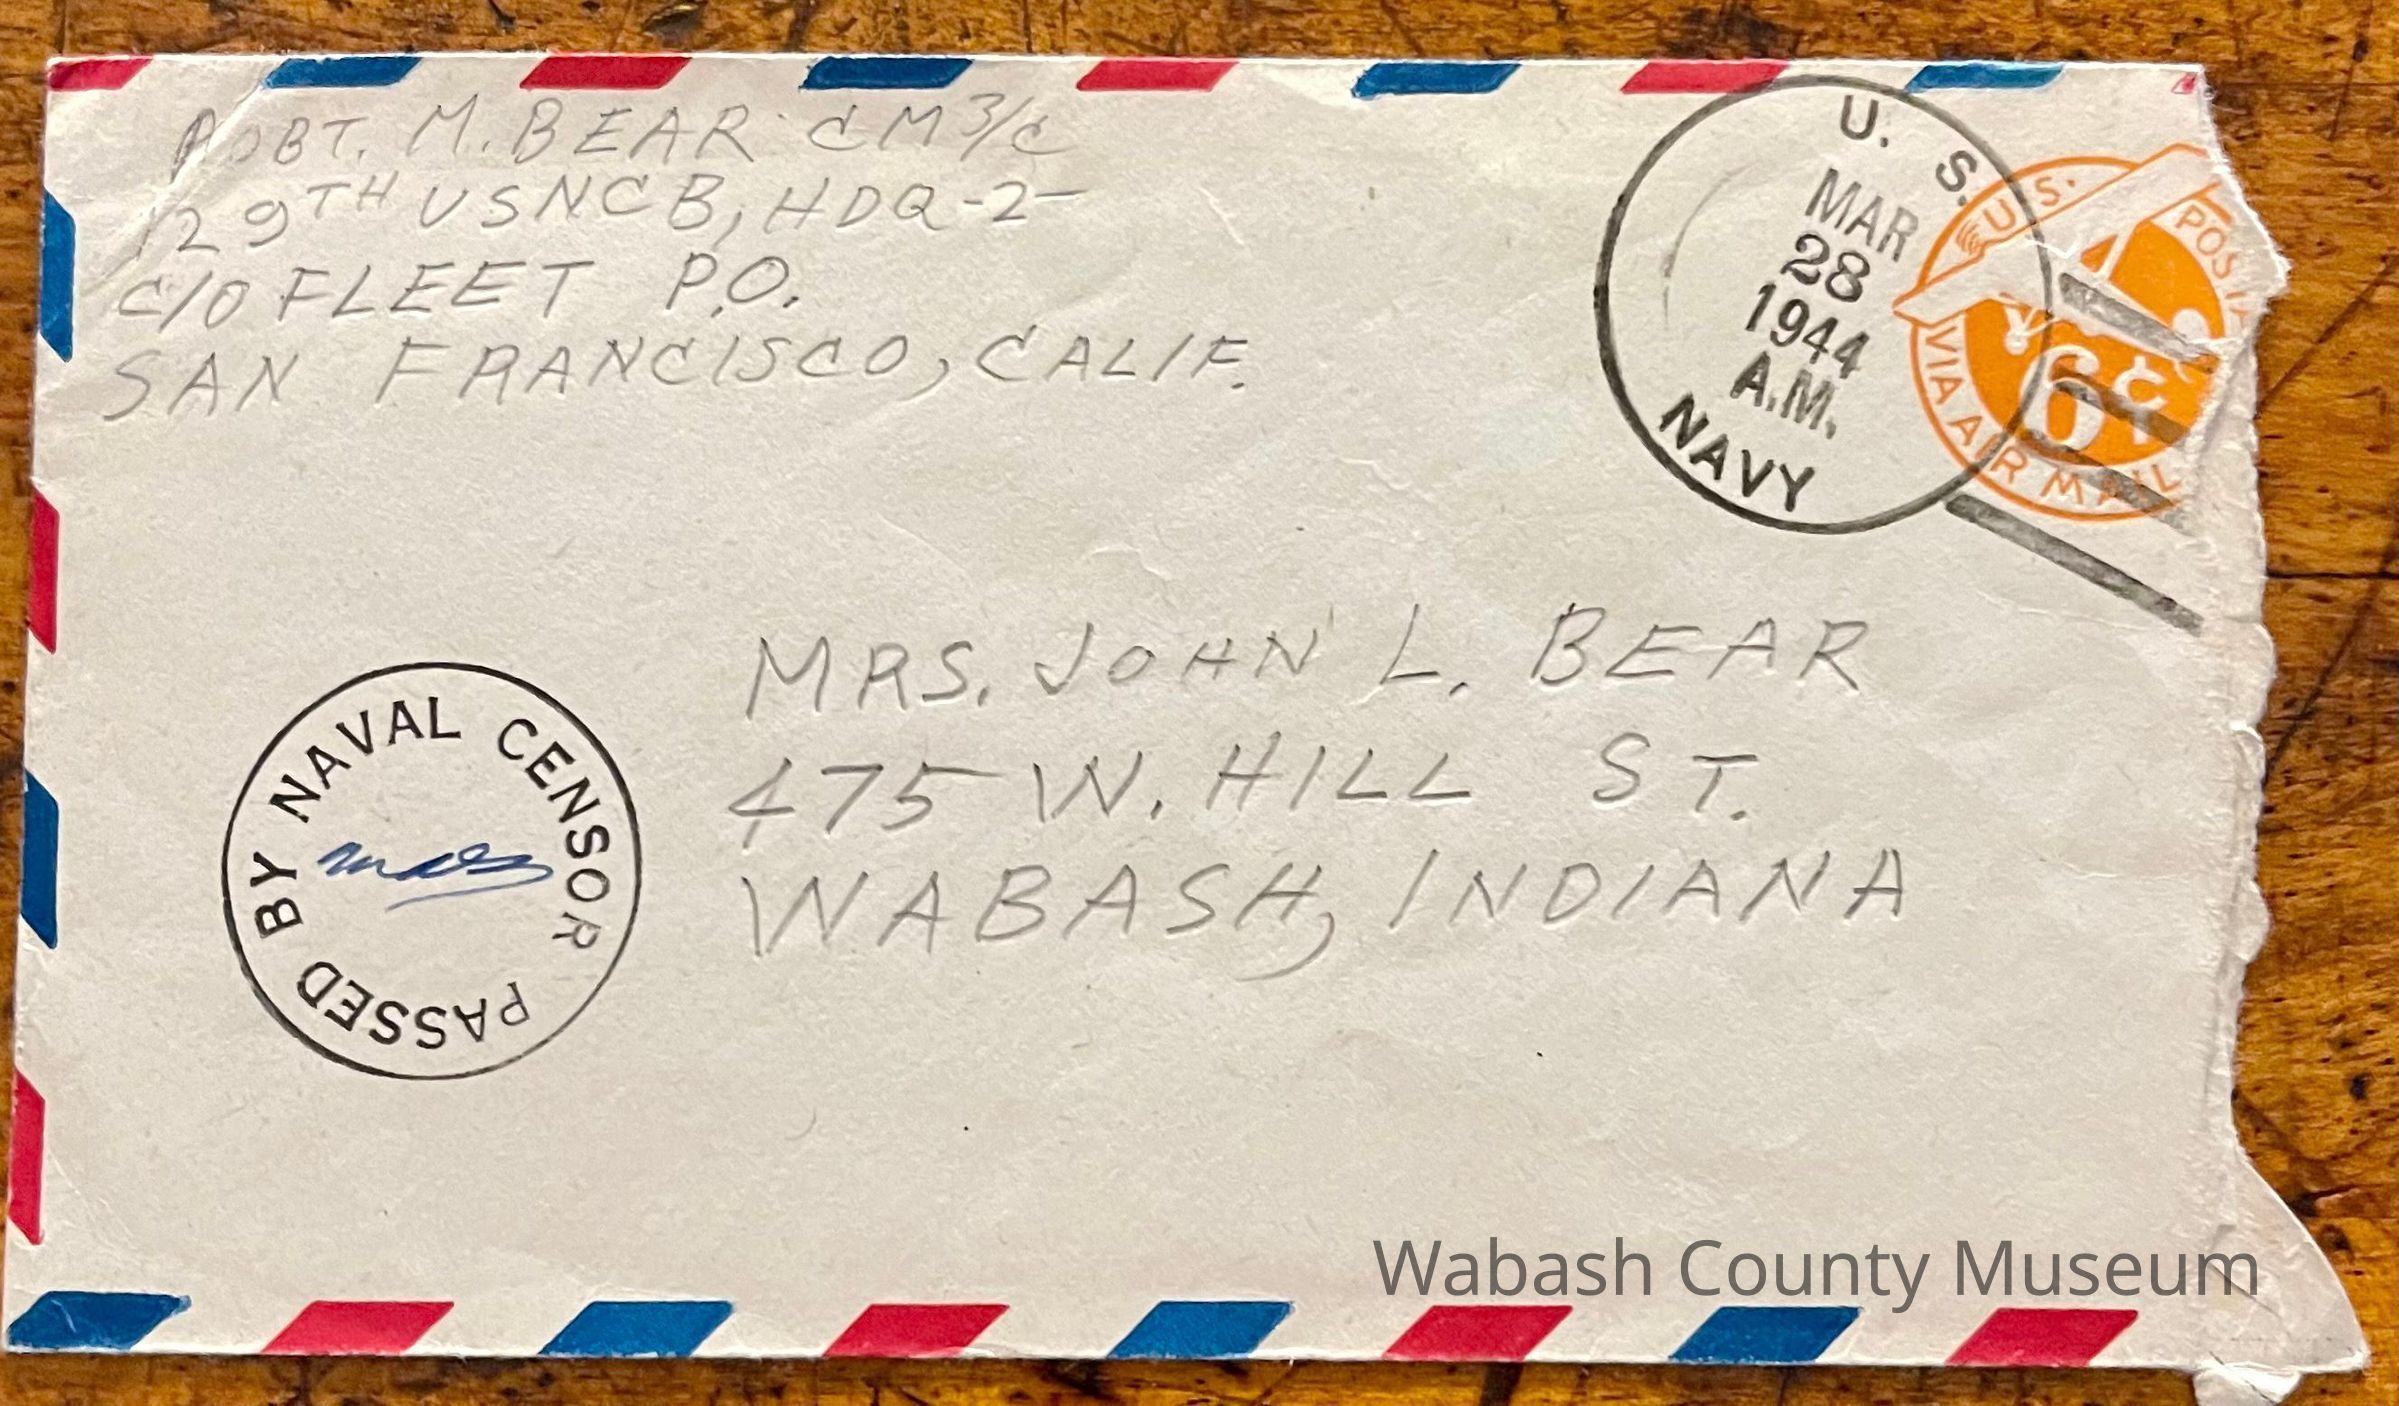 ROBT. M. BEAR CM 3/C
129TH USNCB, HDQ-2-
C/O FLEET P.O.
SAN FRANCISCO, CALIF.
U. S. NAVY
MAR
28
1944
A.M.
U.S. POSTA
6¢
VIA AIR MAIL
MRS. JOHN L. BEAR
475 W. HILL ST.
WABASH, INDIANA
PASSED BY NAVAL CENSOR
Wabash County Museum